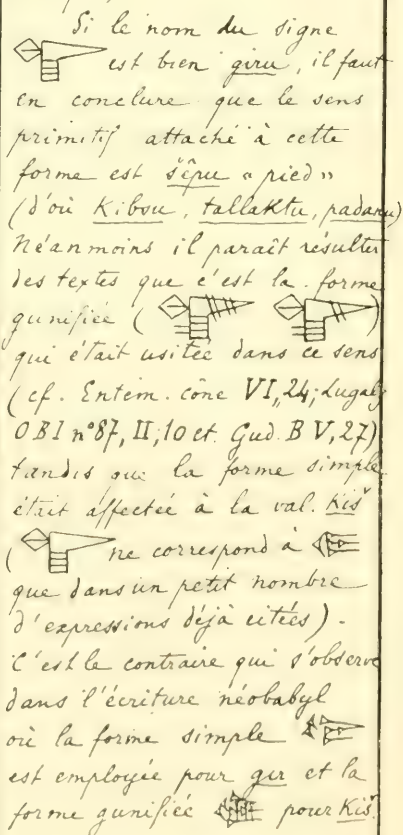 Si le nom du signe
est bien giru, il faut
en conclure que le sens
primitif attaché à cette
forme est šêpu « pied »
(d'où Kibsu, tallaktu, padanu)
Néanmoins il paraît résulter
des textes que c'est la forme
gunifiée (
qui était usitée dans ce sens
(cf. Entém. cône VI, 24; Lugalz
OBI n° 87, II, 10 et Gud. B V, 27)
tandis que la forme simple
était affectée à la val. Kiš
( ne correspond à
que dans un petit nombre
d'expressions déjà citées).
C'est le contraire qui s'observe
dans l'écriture néobabyl
où la forme simple
est employée pour gir et la
forme gunifiée pour Kiš.